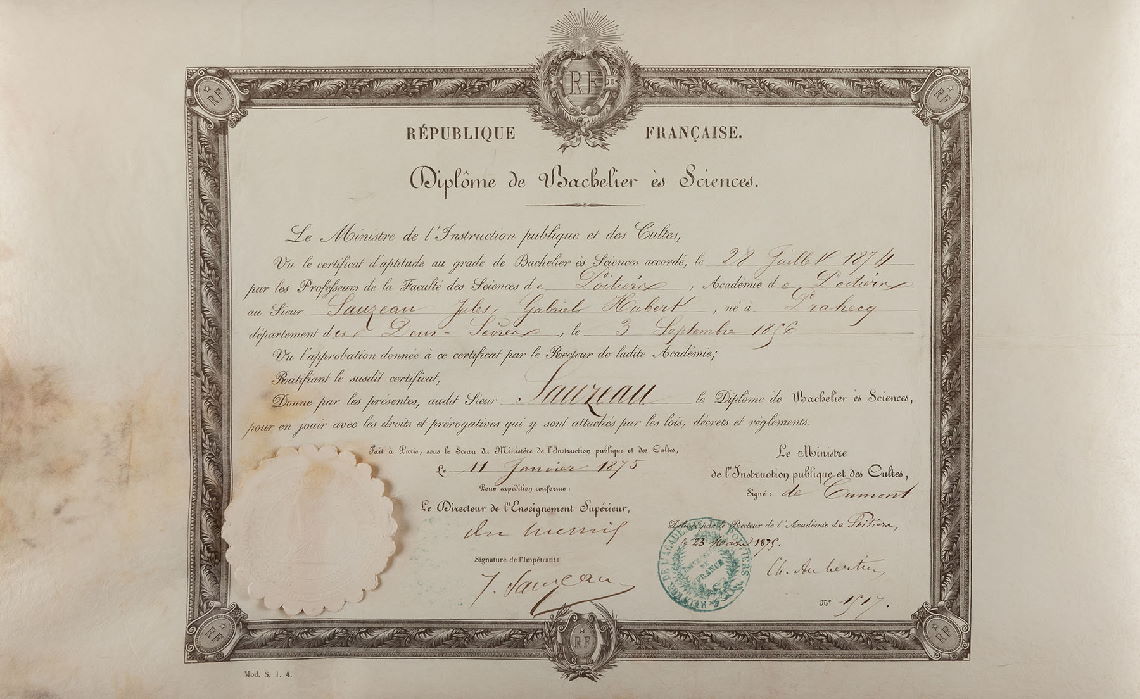 RF
RÉPUBLIQUE FRANÇAISE.
Diplôme de Bachelier ès Sciences.
Le Ministre de l'Instruction publique et des Cultes,
Vu le certificat d'aptitude au grade de Bachelier ès Sciences accordé, le 28 Juillet 1874
par les Professeurs de la Faculté des Sciences de Poitiers, Académie de Poitiers
au Sieur Sauzeau Jules Gabriel Hubert, né à Prahecq
département des Deux-Sèvres, le 3 Septembre 1856
Vu l'approbation donnée à ce certificat par le Recteur de ladite Académie;
Ratifiant le susdit certificat,
Donne par les présentes, audit Sieur Sauzeau le Diplôme de Bachelier ès Sciences,
pour en jouir avec les droits et prérogatives qui y sont attachés par les lois, décrets et règlements.
Fait à Paris, sous le Sceau du Ministère de l'Instruction publique et des Cultes,
Le 11 Janvier 1875
Pour expédition conforme:
Le Directeur de l'Enseignement Supérieur,
du Mesnil
Signature de l'Impétrant:
J. Sauzeau
Le Ministre
de l'Instruction publique et des Cultes,
Signé: de Cumont
Recteur de l'Académie de Poitiers,
le 23 1875.
Ch. Aubertin
N° 1517.
RF
Mod. S. 1. 4.